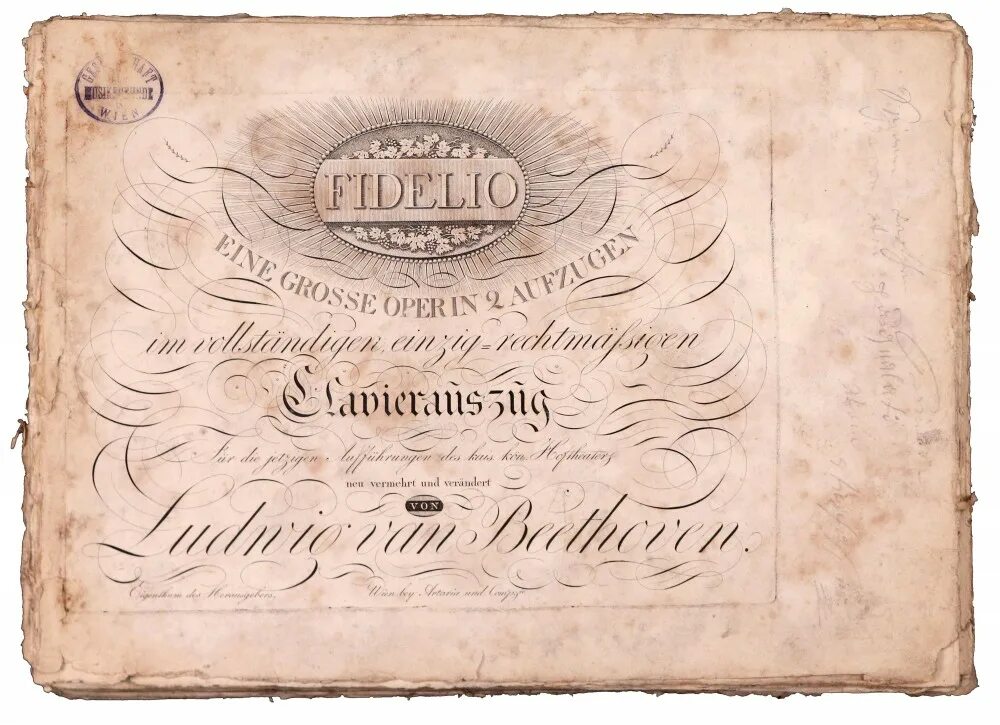 GESELLSCHAFT
MUSIKFREUNDE
WIEN
FIDELIO
EINE GROSSE OPER IN 2 AUFZUGEN
im vollständigen, einzig=rechtmäſsigen
Clavierauszug
Für die jetzigen Aufführungen des kais. kön. Hoftheaters
neu vermehrt und verändert
VON
Ludwig van Beethoven.
Eigenthum des Herausgebers.
Wien bey Artaria und Comp.